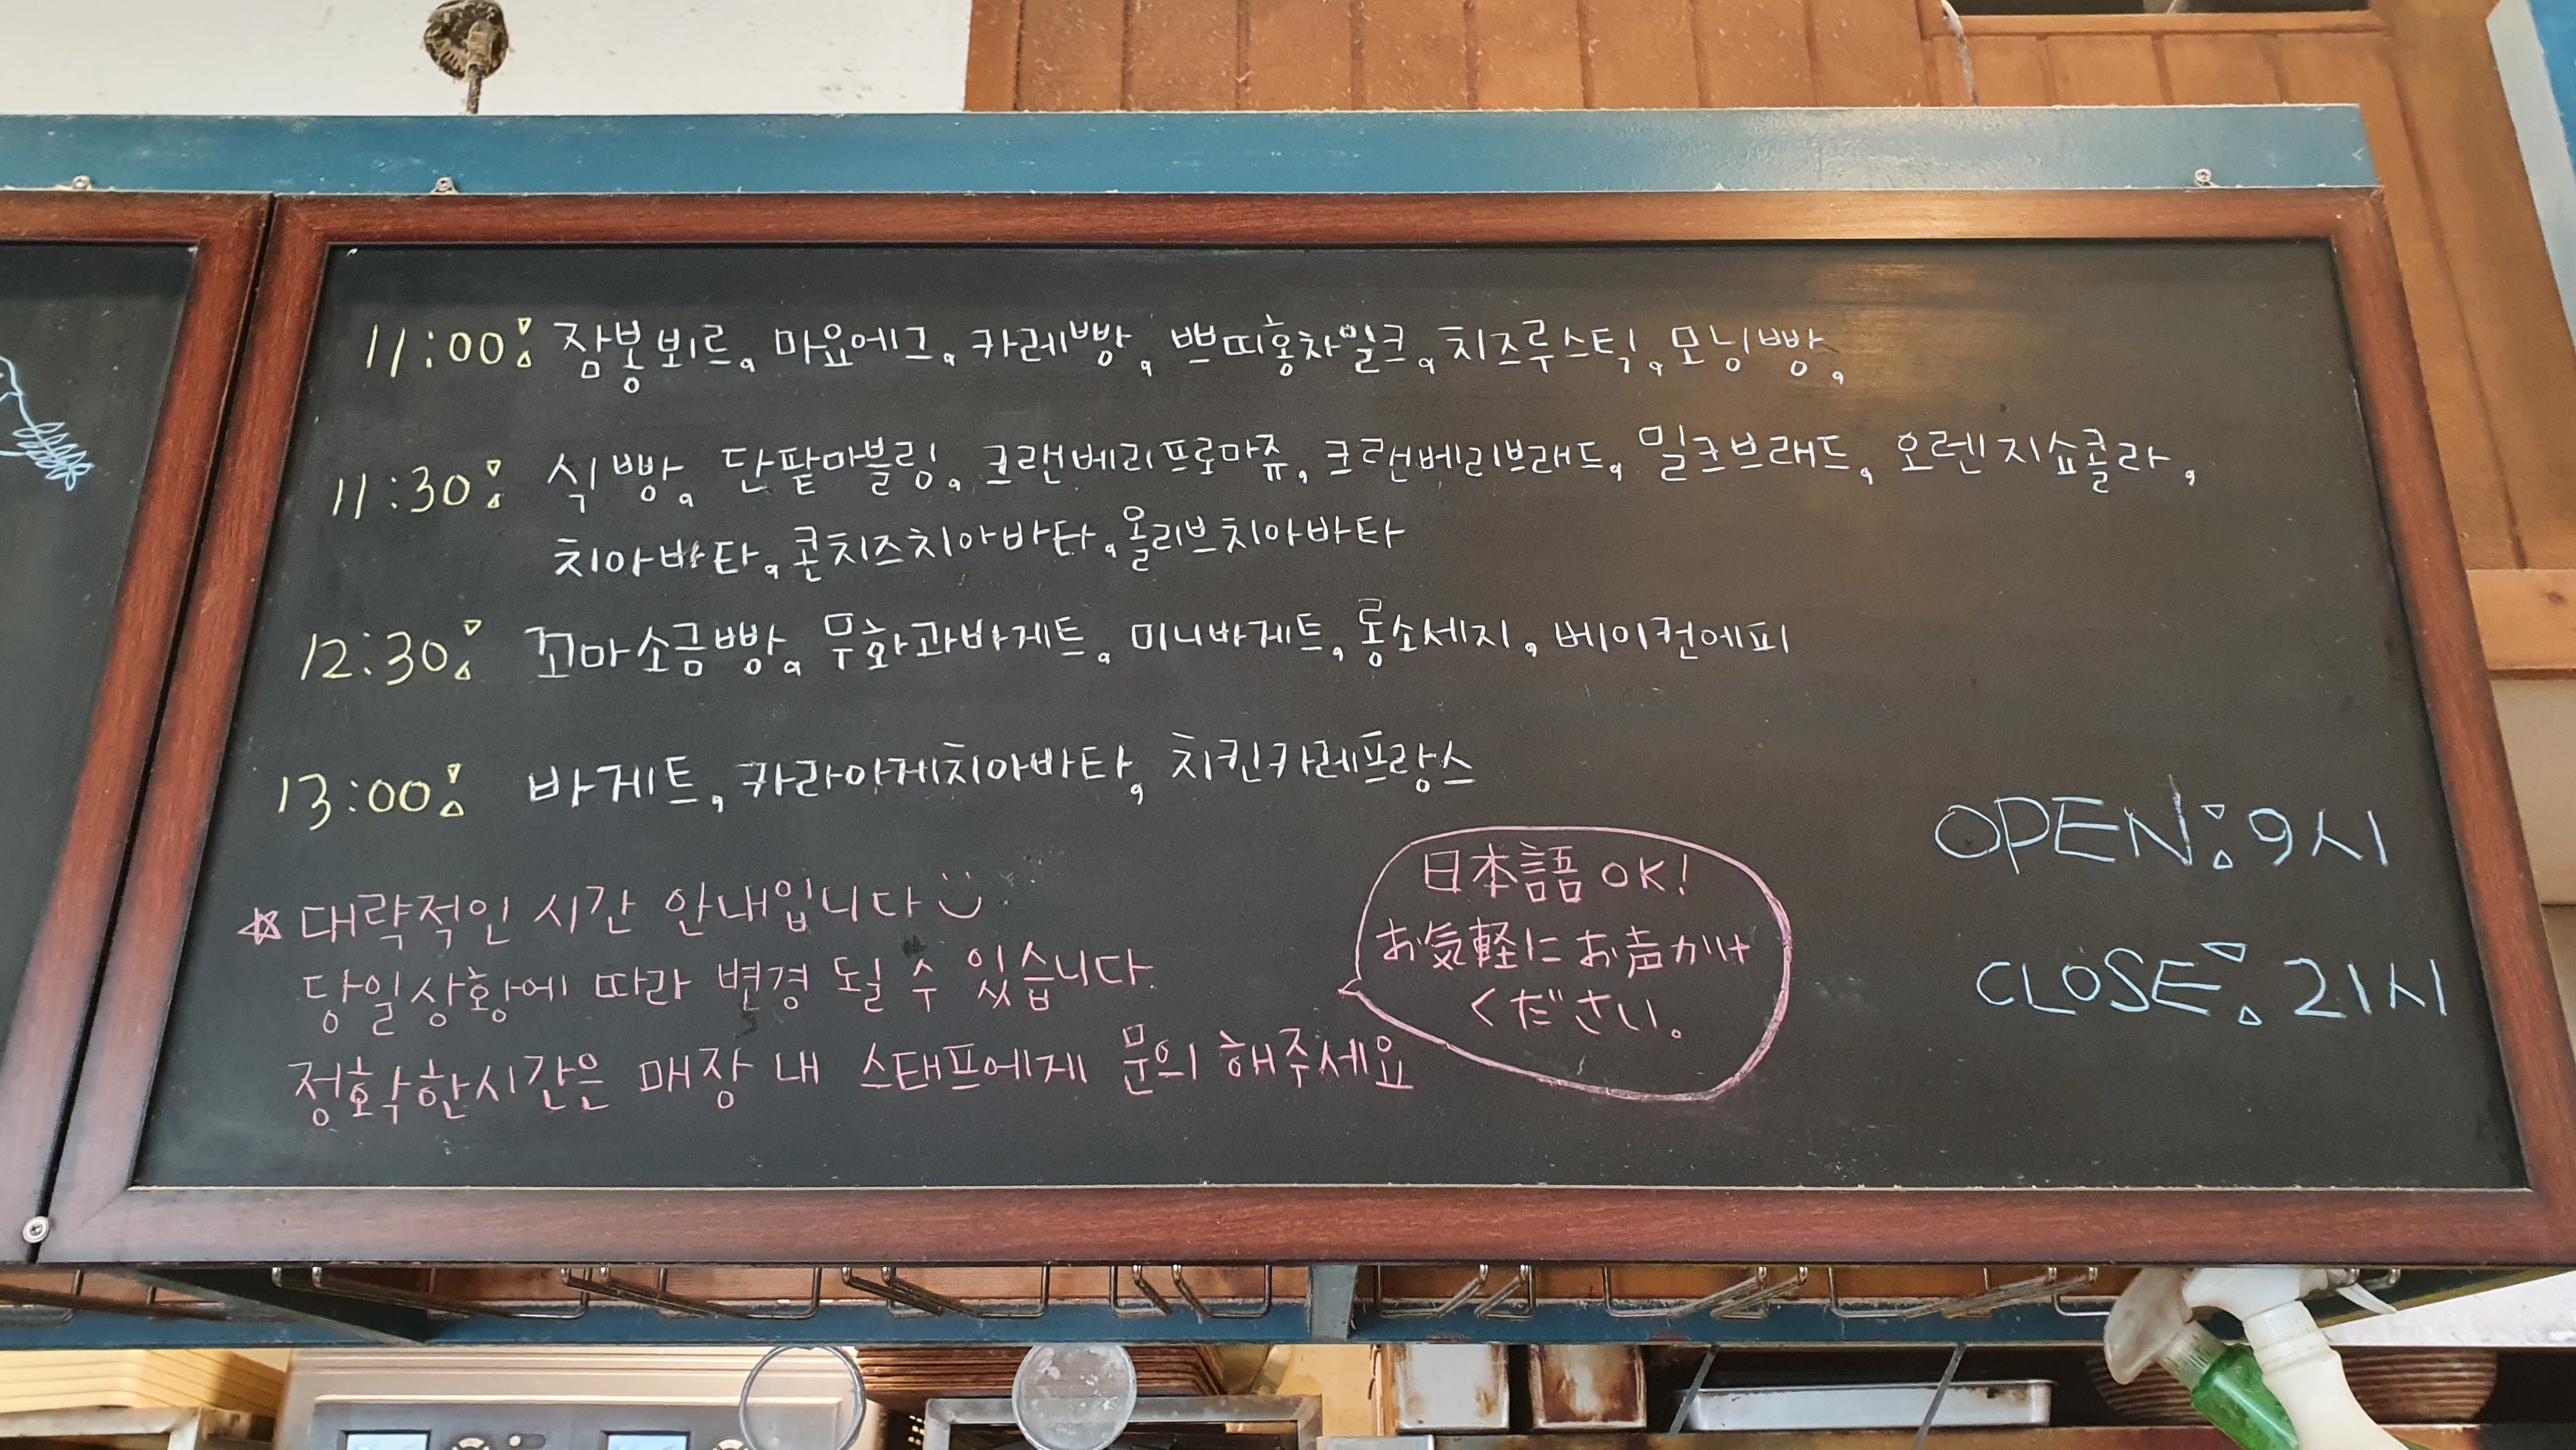 11:00: 잠봉뵈르, 마요에그, 카레빵, 쁘띠홍차밀크, 치즈루스틱, 모닝빵,
11:30: 식빵, 단팥마블링, 크랜베리프로마쥬, 크랜베리브래드, 밀크브래드, 오렌지쇼콜라,
치아바타, 콘치즈치아바타, 올리브치아바타
12:30: 꼬마소금빵, 무화과바게트, 미니바게트, 롱소세지, 베이컨에피
13:00: 바게트, 카라아게치아바타, 치킨카레프랑스
☆ 대략적인 시간 안내입니다
당일상황에 따라 변경 될 수 있습니다.
정확한시간은 매장 내 스태프에게 문의 해주세요
日本語 OK!
お気軽にお声がけ
ください。
OPEN: 9시
CLOSE: 21시